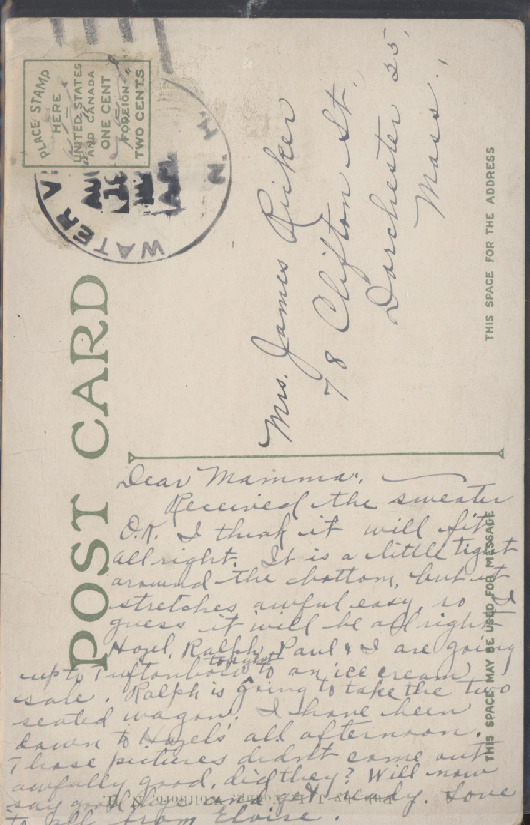 PLACE STAMP
HERE
UNITED STATES
AND CANADA
ONE CENT
FOREIGN
TWO CENTS
WATER V
N. H.
POST CARD
THIS SPACE FOR THE ADDRESS
Mrs. James Ricker
78 Clifton St.
Dorchester 25,
Mass.,
THIS SPACE MAY BE USED FOR MESSAGE
Dear Mamma,
Received the sweater
O.K. I think it will fit
all right. It is a little tight
around the bottom, but it
stretches awful easy, so I
guess it will be all right.
Hazel, Ralph, Paul & I are going
up to Tuftonboro to an ice cream
tonight
sale. Ralph is going to take the two
seated wagon. I have been
down to Hazels' all afternoon.
Those pictures didn't come out
awfully good, did they? Will now
say good bye and get ready. Love
to all from Eloise.